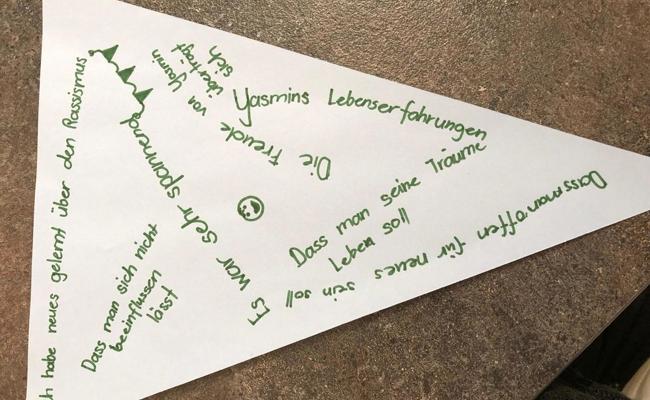 Yasmins Lebenserfahrungen
Die Freude
von Yasmin
überträgt
sich
Dass man seine Träume
Leben soll
Dass man offen für neues sein soll
Es war sehr spannend
Dass man sich nicht
beeinflussen
lässt
ch habe neues gelernt über den Rassismus